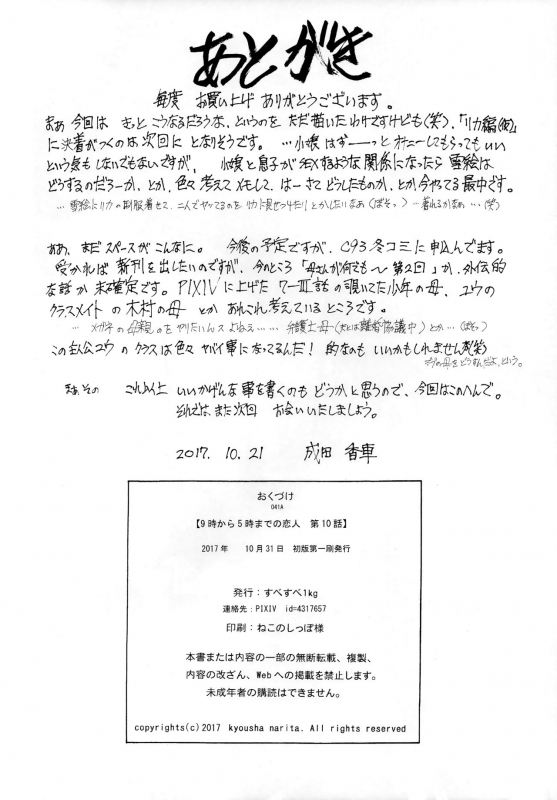 あとがき
毎度 お買い上げ ありがとうございます。
まぁ 今回は きっと こうなるだろうな、というのを ただ描いたわけですけども(笑)、「リカ編(仮)」
に決着がつくのは次回に となりそうです。 …小娘はずーーっと オナニーしてもらっててもいい
という気も しないでもないですが、 小娘と息子がSEXするような関係になったら 雪絵は
どうするのだろーか、とか、色々 考えて メモして、はーさて どうしたものか、とか今やってる最中です。
… 雪絵にリカの制服着せて、二人でやってるのを リカに見せつけたり とかしたいなぁ (ぼそっ) … 着れるかなぁ … (笑)
ああ、まだ スペースが こんなに。 今後の予定ですが、C93冬コミに申込んでます。
受かれば 新刊を出したいのですが、今のところ「母さんが何でも〜 第2回」か、外伝的
な話か 未確定です。PIXIVに上げた 7-III話 の覗いてた少年の母、ユウの
クラスメイトの木村の母 とか あれこれ考えているところです。
… メガネの母親ものを やりたいんス よねぇ …… 弁護士母 (または離婚協議中) とか … (ぼそっ)
この主人公ユウ の クラスは色々 ヤバイ事になってるんだ! 的なのも いいかもしれません
まぁ、その これ以上 いいかげんな事を書くのも どうかと思うので、今回はこのへんで。
それでは、また次回 お会いいたしましょう。
2017. 10. 21 成田 香車
おくづけ
041A
【9時から5時までの恋人 第10話】
2017年 10月31日 初版第一刷発行
発行：すべすべ1kg
連絡先：PIXIV id=4317657
印刷：ねこのしっぽ様
本書または内容の一部の無断転載、複製、
内容の改ざん、Webへの掲載を禁止します。
未成年者の購読はできません。
copyrights(c)2017 kyousha narita. All rights reserved